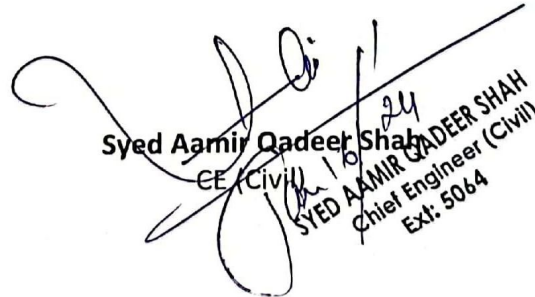 Syed Aamir Qadeer Shah
CE (Civil)
SYED AAMIR QADEER SHAH
Chief Engineer (Civil)
Ext: 5064